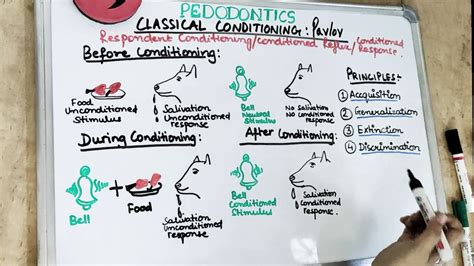 PEDODONTICS
CLASSICAL CONDITIONING: Pavlov
Respondent Conditioning/conditioned Reflex/Conditioned Response.
Before Conditioning:
Food
Unconditioned
Stimulus
Salivation
Unconditioned
response
Bell
Neutral
Stimulus
No Salivation
No Conditioned
response
PRINCIPLES:-
① Accquisition
② Generalisation
③ Extinction
④ Discrimination
During Conditioning:
Bell
+
Food
Salivation
Unconditioned
response
After Conditioning:
Bell
Conditioned
Stimulus
Salivation
conditioned
response.